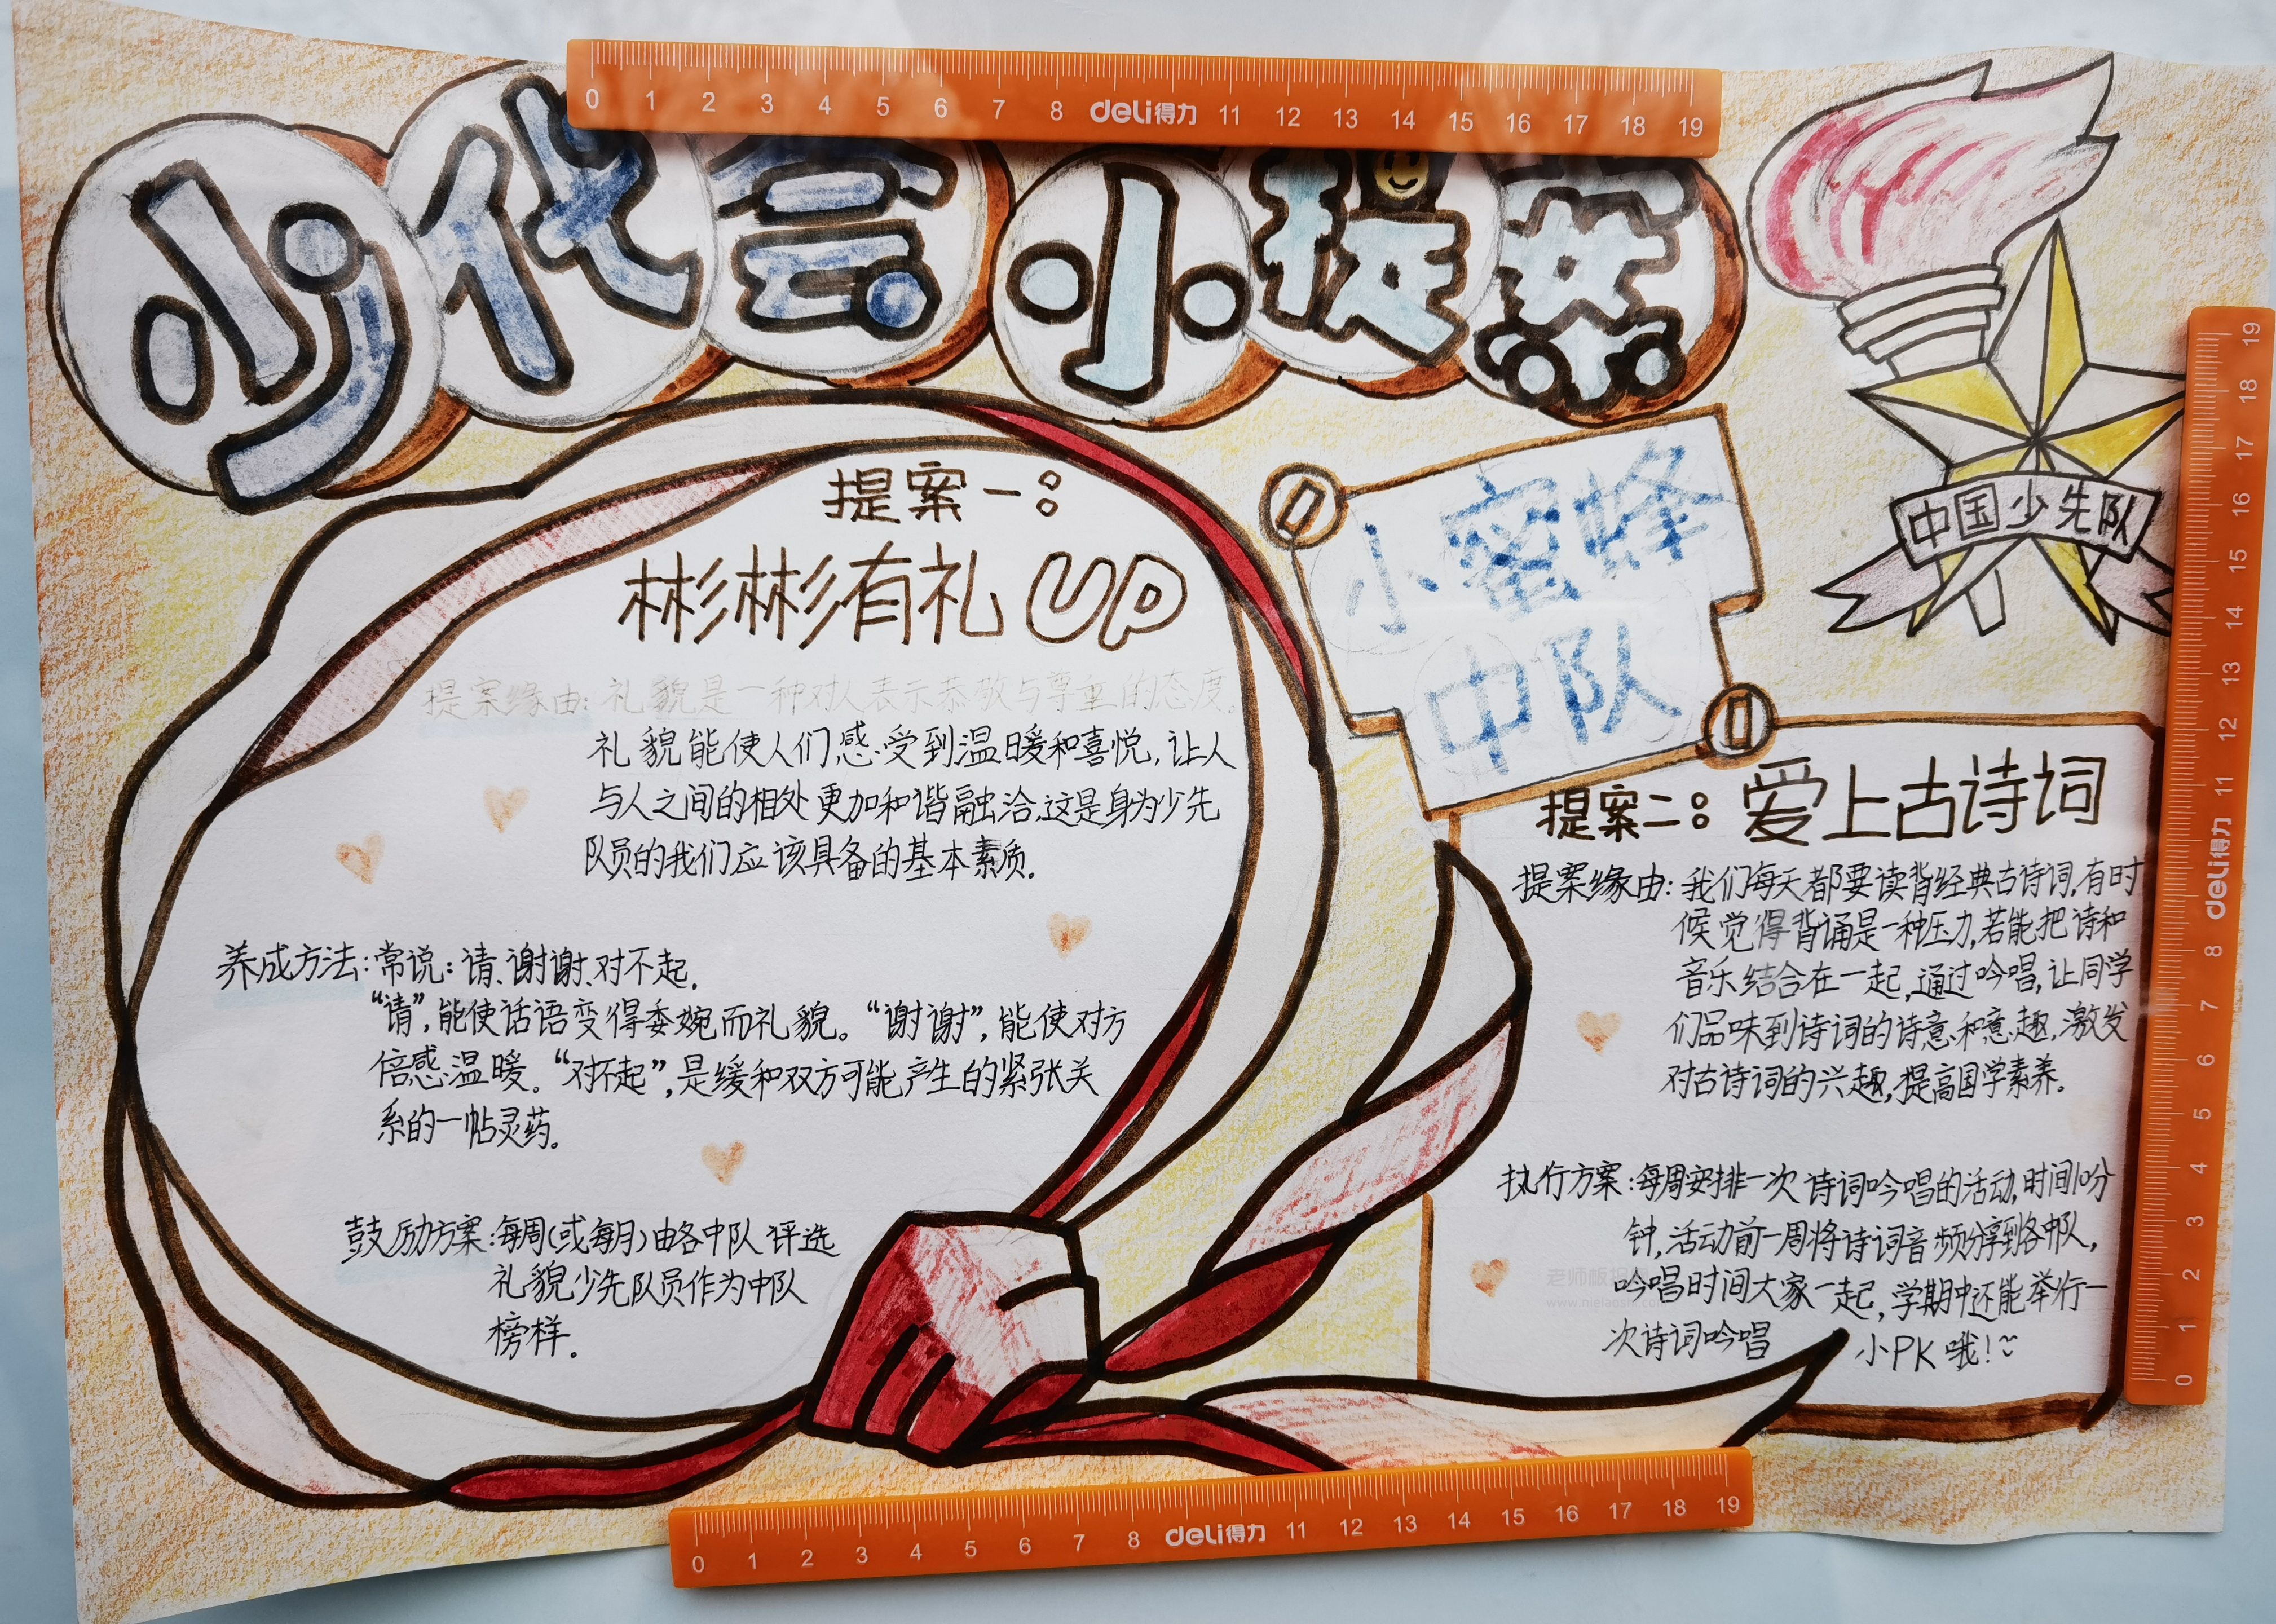 少代会小提案
0 1 2 3 4 5 6 7 8 deli得力 11 12 13 14 15 16 17 18 19
中国少先队
小蜜蜂
中队
提案一:
彬彬有礼UP
提案缘由:礼貌是一种对人表示恭敬与尊重的态度。
礼貌能使人们感受到温暖和喜悦,让人
与人之间的相处更加和谐融洽,这是身为少先
队员的我们应该具备的基本素质.
养成方法:常说:请、谢谢、对不起.
“请”,能使话语变得委婉而礼貌。“谢谢”,能使对方
倍感温暖。“对不起”,是缓和双方可能产生的紧张关
系的一帖灵药。
鼓励方案:每周(或每月)由各中队评选
礼貌少先队员作为中队
榜样.
提案二:爱上古诗词
提案缘由:我们每天都要读背经典古诗词,有时
候觉得背诵是一种压力,若能把诗和
音乐结合在一起,通过吟唱,让同学
们品味到诗词的诗意和意趣,激发
对古诗词的兴趣,提高国学素养。
执行方案:每周安排一次诗词吟唱的活动,时间10分
钟,活动前一周将诗词音频分享到各中队,
吟唱时间大家一起,学期中还能举行一
次诗词吟唱小PK哦!~
老师板报网
0 1 2 3 4 5 6 7 8 deli得力 11 12 13 14 15 16 17 18 19
0 1 2 3 4 5 6 7 8 deli得力 11 12 13 14 15 16 17 18 19